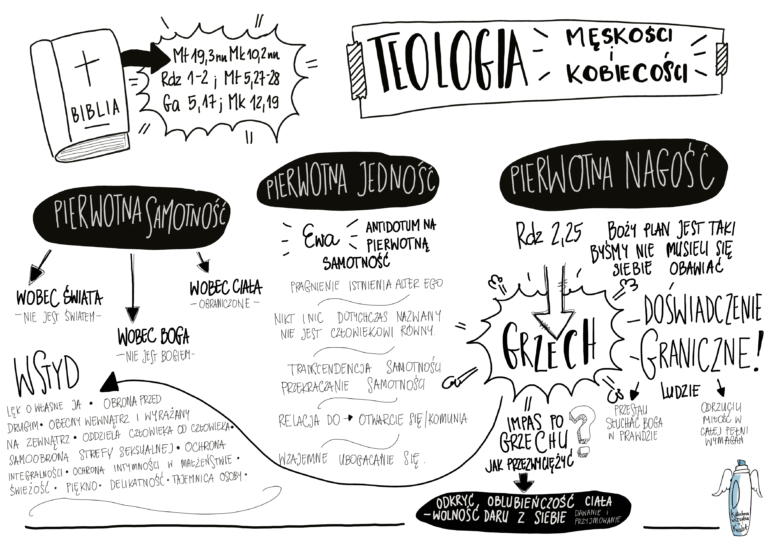 BIBLIA
Mt 19,3nn Mk 10,2nn
Rdz 1-2 ; Mt 5,27-28
Ga 5,17 ; Mk 12,19
TEOLOGIA
MĘSKOŚCI
i
KOBIECOŚCI
PIERWOTNA SAMOTNOŚĆ
WOBEC ŚWIATA
- NIE JEST ŚWIATEM -
WOBEC BOGA
- NIE JEST BOGIEM -
WOBEC CIAŁA
- OGRANICZONE -
WSTYD
LĘK O WŁASNE JA • OBRONA PRZED
DRUGIM • OBECNY WEWNĄTRZ I WYRAŻANY
NA ZEWNĄTRZ • ODDZIELA CZŁOWIEKA OD CZŁOWIEKA •
SAMOOBRONA STREFY SEKSUALNEJ • OCHRONA
INTEGRALNOŚCI • OCHRONA INTYMNOŚCI W MAŁŻEŃSTWIE •
ŚWIEŻOŚĆ • PIĘKNO • DELIKATNOŚĆ • TAJEMNICA OSOBY •
PIERWOTNA JEDNOŚĆ
Ewa
ANTIDOTUM NA
PIERWOTNĄ
SAMOTNOŚĆ
PRAGNIENIE ISTNIENIA ALTER EGO
NIKT I NIC DOTYCHCZAS NAZWANY
NIE JEST CZŁOWIEKOWI RÓWNY.
TRANSCENDENCJA SAMOTNOŚCI
PRZEKRACZANIE SAMOTNOŚCI
RELACJA DO → OTWARCIE SIĘ/KOMUNIA
WZAJEMNE UBOGACANIE SIĘ.
PIERWOTNA NAGOŚĆ
Rdz 2,25
BOŻY PLAN JEST TAKI
BYŚMY NIE MUSIELI SIĘ
SIEBIE OBAWIAĆ
GRZECH
DOŚWIADCZENIE
GRANICZNE!
LUDZIE
PRZESTALI
SŁUCHAĆ BOGA
W PRAWDZIE
ODRZUCILI
MIŁOŚĆ W
CAŁEJ PEŁNI
WYMAGAŃ
IMPAS PO
GRZECHU
JAK PRZEZWYCIĘŻYĆ
?
ODKRYĆ OBLUBIEŃCZOŚĆ CIAŁA
- WOLNOŚĆ DARU Z SIEBIE DAWANIE I
PRZYJMOWANIE